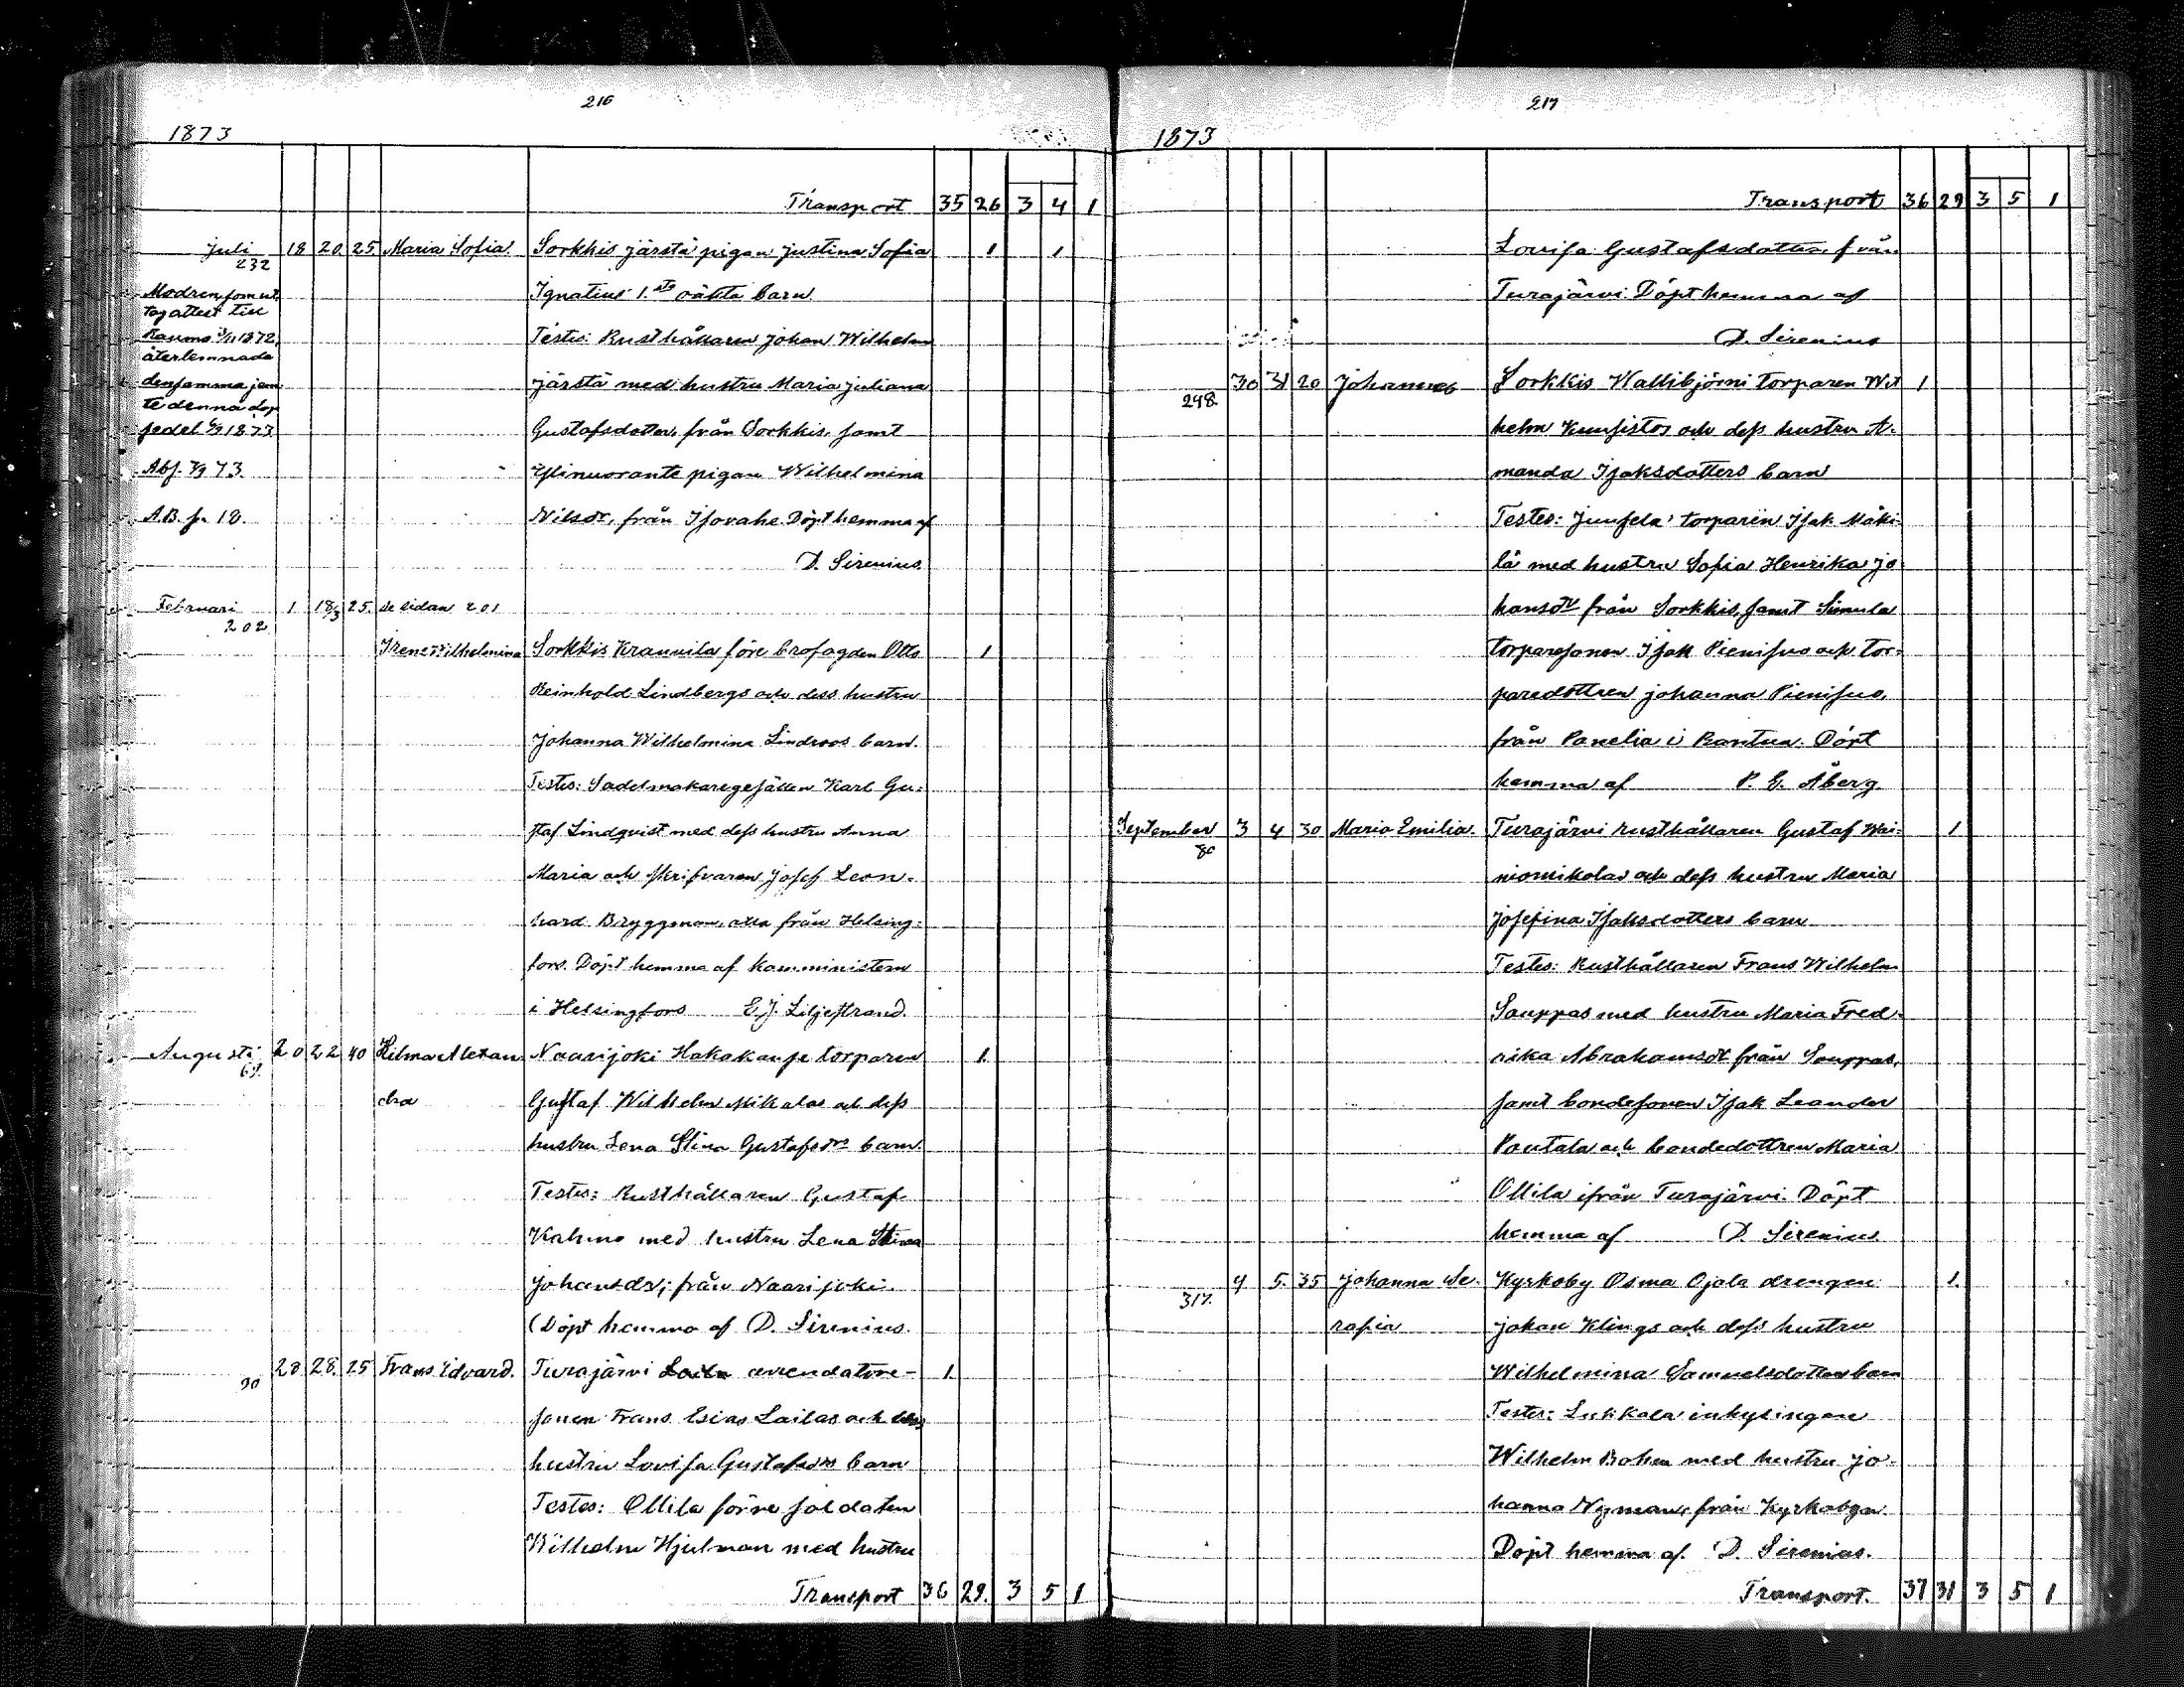 216
1873
Transport 35 26 3 4 1
Juli 18 20. 25. Maria Sofia. Sorkkis Järstä pigan Justina Sofia 1 1
232
Modren som ut Ignatius 1.sta oäkta barn.
tog attest till
Raumo 1872, Testes: Rusthållaren Johan Wilhelm
återlemnade
densamma jem Järstä med hustru Maria Juliana
te denna dop
sedel 1873 Gustafsdotter, från Sorkkis, samt
Abs. 73. Ylinuorante pigan Wilhelmina
A.B. p. 18. Nilsdr, från Isovahe. Döpt hemma af
D. Sirenius.
Februari 1 18/3 25. Se sidan 201
202
Irene Wilhelmina Sorkkis Krannila före brofogden Otto 1
Reinhold Lindbergs och dess hustru
Johanna Wilhelmina Lindroos barn.
Testes: Sadelmakaregesällen Karl Gu-
staf Lindqvist med dess hustru Anna
Maria och skrifvaren Josef Leon-
hard Bryggman, alla från Helsing-
fors. Döpt hemma af Kamministern
i Helsingfors E. J. Liljestrand.
Augusti 20 22 40 Hilma Alexan- Naarijoki Hakakauje torparen 1.
dra Gustaf Wilhelm Mikolas och dess
hustru Lena Stina Gustafsdrs barn.
Testes: Rusthållaren Gustaf
Kahmo med hustru Lena Stina
Johansdr, från Naarijoki.
(Döpt hemma af D. Sirenius.
90 28 28. 25 Frans Edvard. Turajärvi Laila arrendatore- 1.
sonen Frans Esias Lailas och dess
hustru Lovisa Gustafsdrs barn
Testes: Ollila förre soldaten
Wilhelm Hjulman med hustru
Transport 36 29. 3 5 1
217
1873
Transport 36 29 3 5 1
Lovisa Gustafsdotter, från
Turajärvi. Döpt hemma af
D. Sirenius
298. 30 31 20 Johannes Sorkkis Wallibjörni torparen Wil 1
helm Kuusistos och dess hustru A-
manda Isaksdotters barn
Testes: Junsela torparen Isak Mäki-
lä med hustru Sofia Henrika Jo
hansdr från Sorkkis, samt Simula
torparesonen Isak Pienisuo och tor-
paredottren Johanna Pienisuo,
från Panelia i Kantua. Döpt
hemma af P. E. Åberg.
September 3 4 30 Maria Emilia. Turajärvi rusthållaren Gustaf Wai- 1
80
niomikolas och dess hustru Maria
Josefina Isaksdotters barn
Testes: Rusthållaren Frans Wilhelm
Sauppas med hustru Maria Fred-
rika Abrahamsdr från Sauppas,
samt bondesonen Isak Leander
Pautala och bondedottren Maria
Ollila ifrån Turajärvi. Döpt
hemma af D. Sirenius.
317. 4 5. 35 Johanna Se- Kyrkoby Osma Ojala drengen 1.
rafia Johan Klings och dess hustru
Wilhelmina Samuelsdotters barn
Testes: Lukkala inhysingen
Wilhelm Bohm med hustru Jo-
hanna Nyman, från Kyrkobyn.
Döpt hemma af. D. Sirenius.
Transport. 37 31 3 5 1